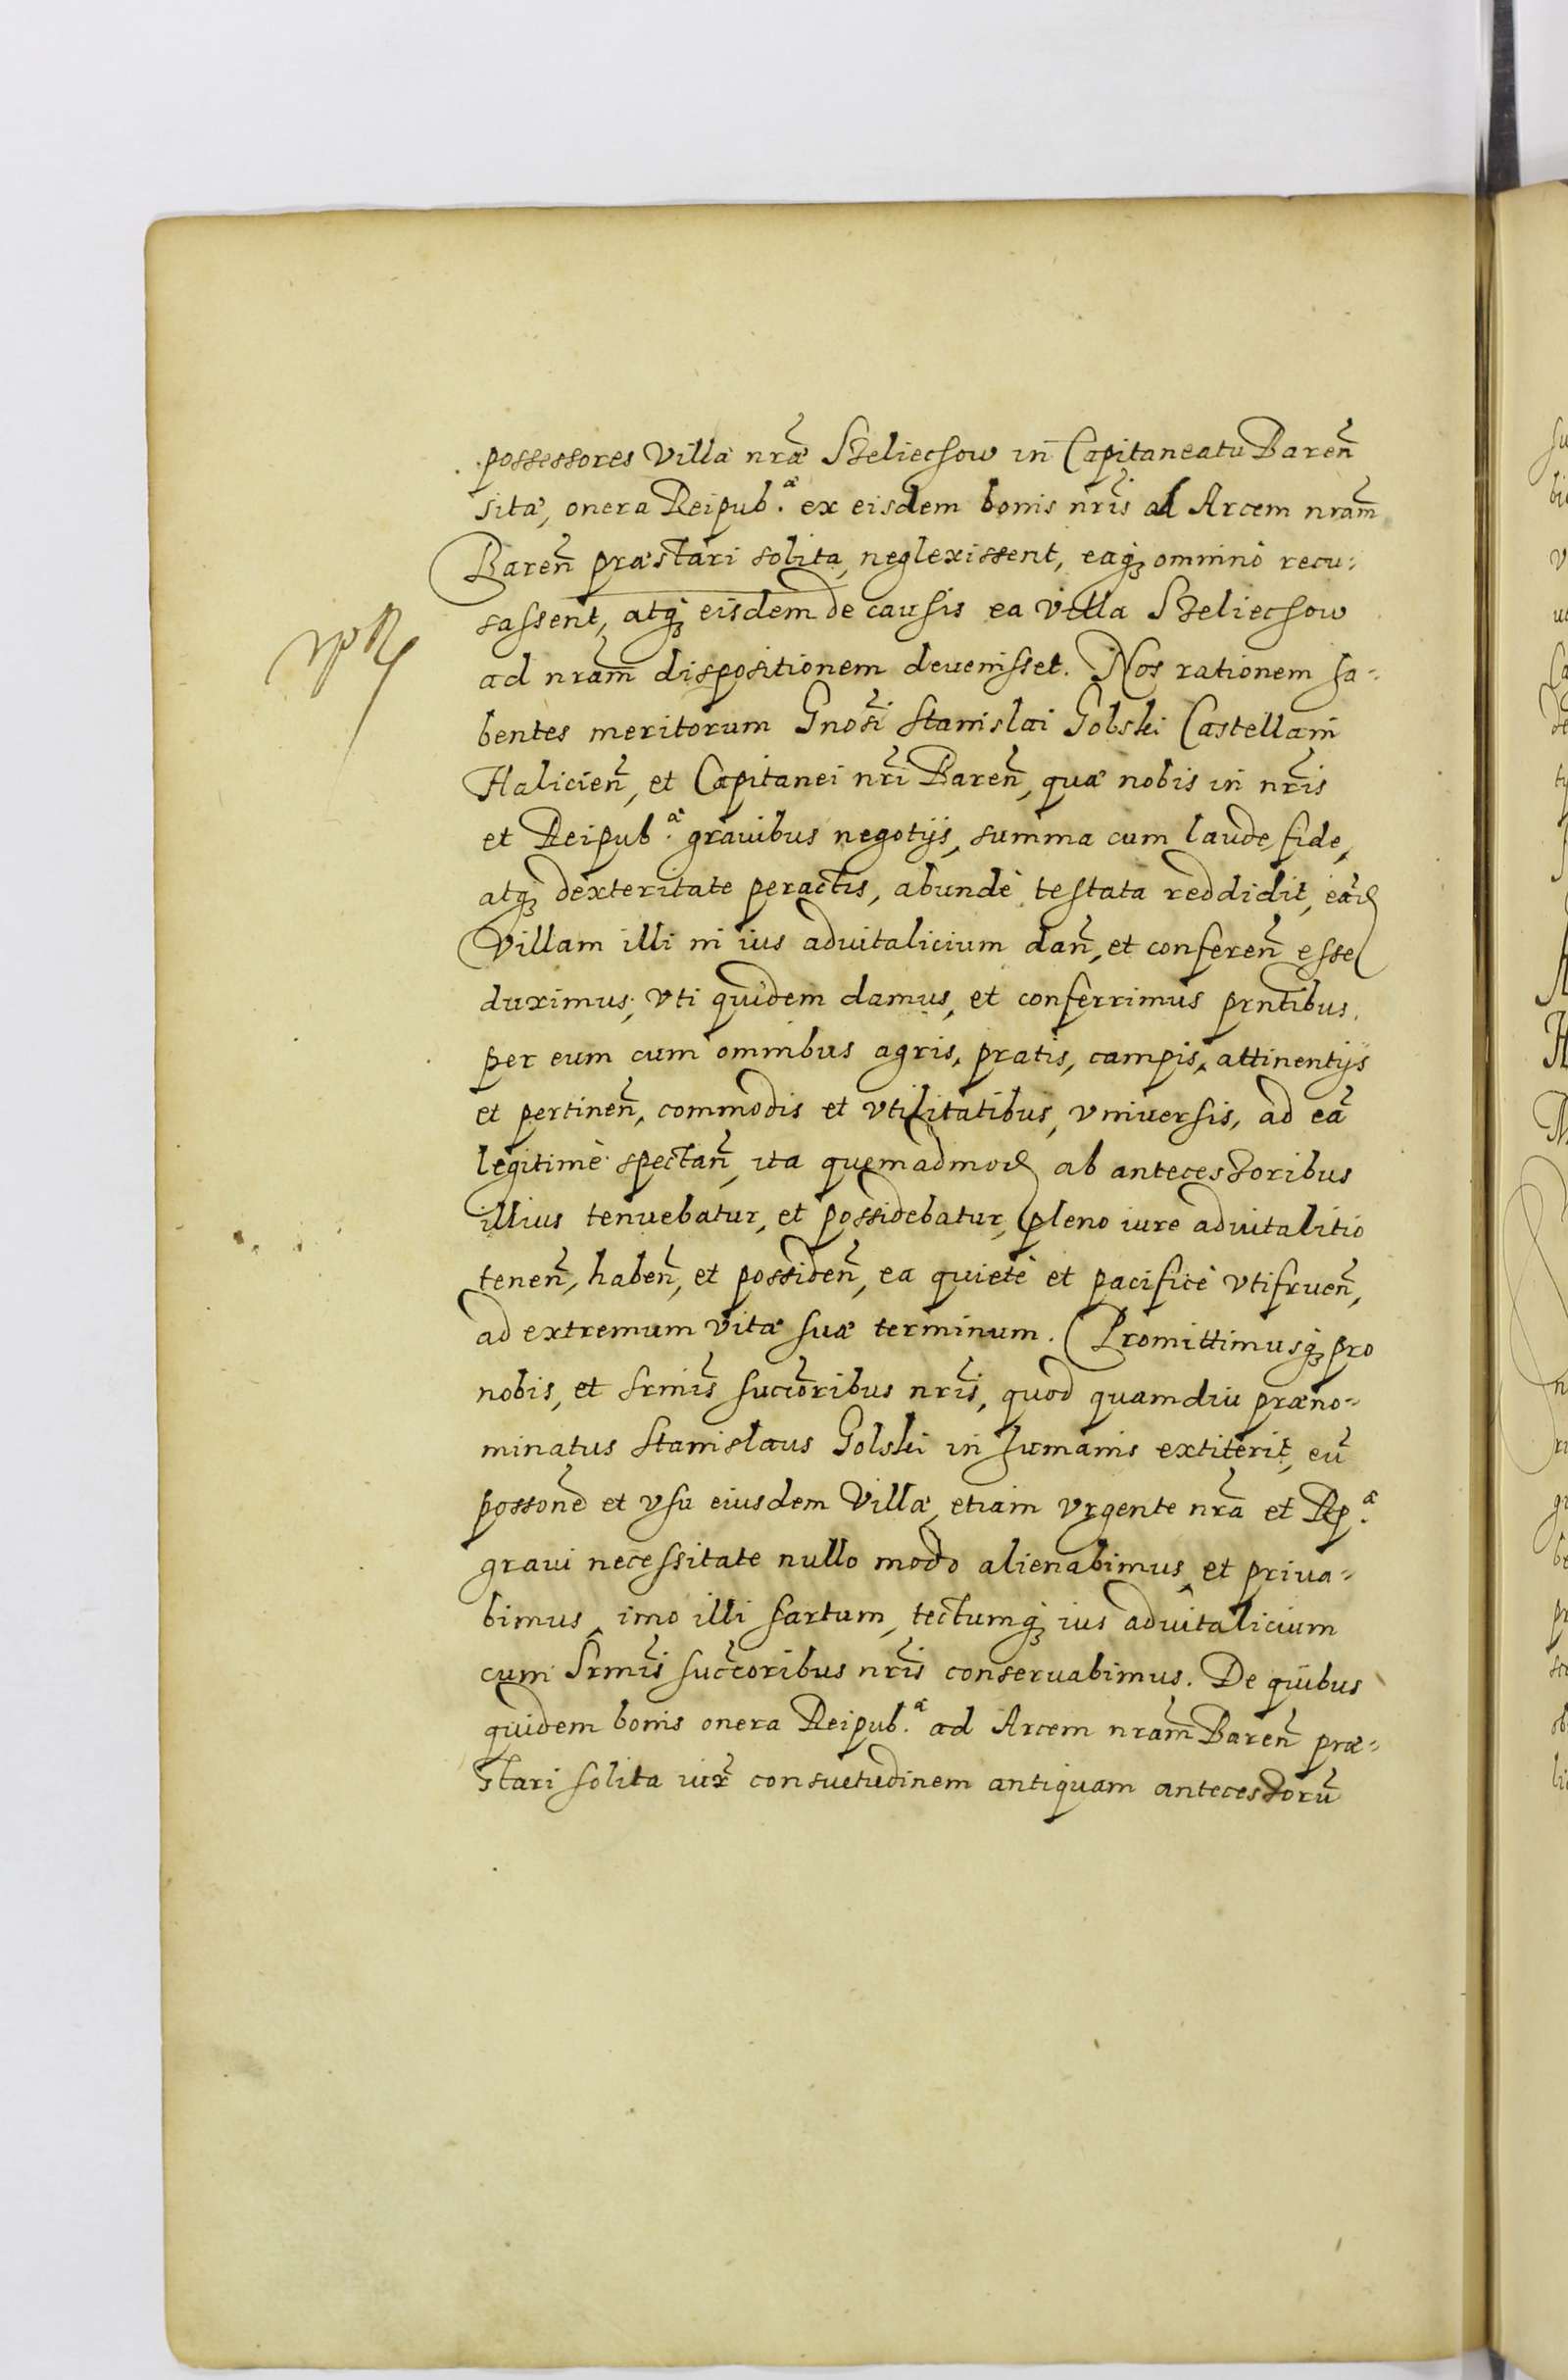 possessores Villæ nræ̃ Szeliechow in Capitaneatu Bareñ
sitæ, onera Reipub.æ ex eisdem bonis nrĩs ad Arcem nram̃
Bareñ præstari solita, neglexissent, eaq₃ omninò recu:
sassent, atq₃ eisdem de causis ea villa Szeliechow
ad nram̃ dispositionem devenisset. Nos rationem ha-
bentes meritorum Gnosĩ Stanislai Golski Castellani
Halicieñ, et Capitanei nrĩ Bareñ, quæ nobis in nrĩs
et Reipub.æ grauibus negotijs, summa cum laude, fide,
atq₃ dexteritate peractis, abundè testata reddidit, eañd
Villam illi in ius aduitalicium dañ, et confereñ esse
duximus; vti quidem damus, et conferrimus prntĩbus.
per eum cum omnibus agris, pratis, campis, attinentijs
et pertineñ, commodis et vtilitatibus, vniuersis, ad eã
legitimè spectañ, ita quemadmod ab antecessoribus
illius tenuebatur, et possidebatur, pleno iure aduitalitio
teneñ, habeñ, et possideñ, ea quietè et pacificè vtifrueñ,
ad extremum vitæ suæ terminum. Promittimusq₃ pro
nobis, et Srmĩs succoribus nrĩs, quod quamdiu præno-
minatus Stanislaus Golski in humanis extiterit, eũ
possone et vsu eiusdem Villæ, etiam vrgente nrã et Rp.æ
graui necessitate nullo modo alienabimus, et priua-
bimus, imo illi sartum, tectumq₃ ius aduitalicium
cum Srmĩs succoribus nrĩs conseruabimus. De quibus
quidem bonis onera Reipub.æ ad Arcem nram̃ Bareñ præ-
stari solita iux̃ consuetudinem antiquam antecessorũ